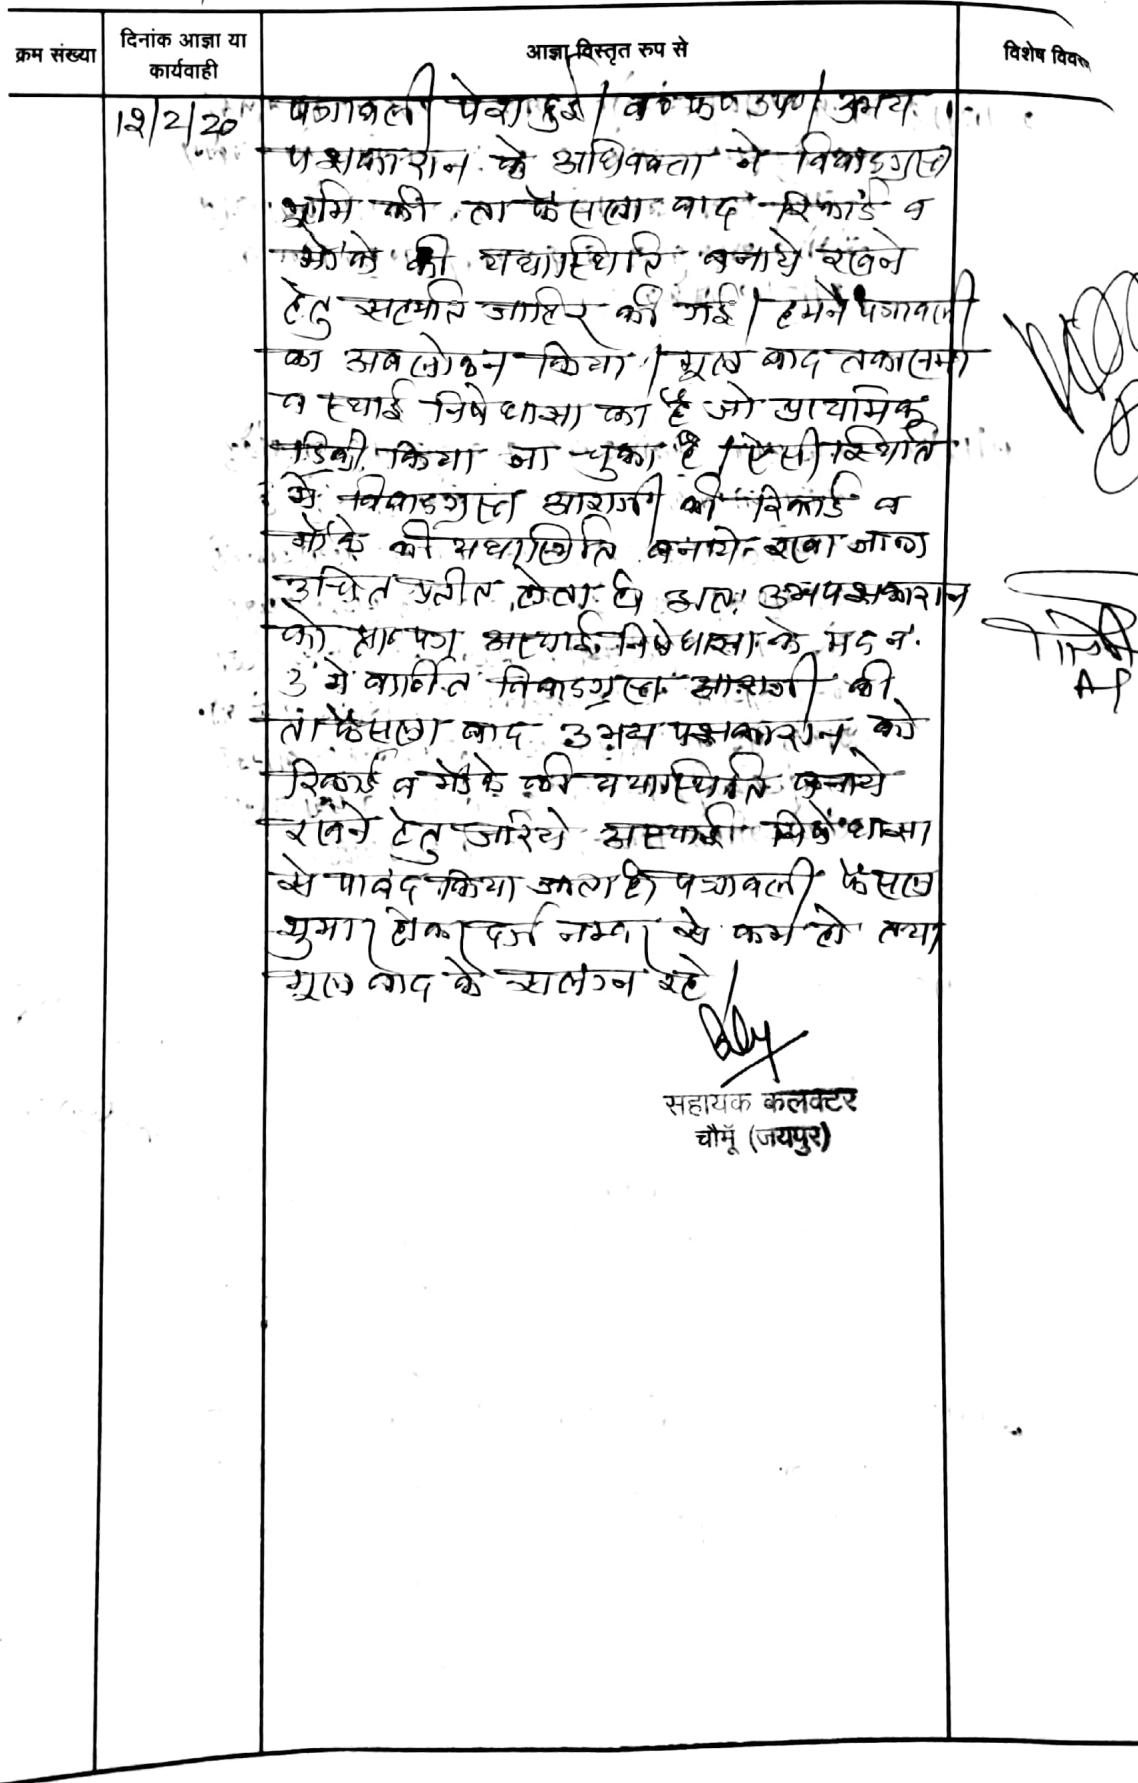 क्रम संख्या
दिनांक आज्ञा या
कार्यवाही
आज्ञा विस्तृत रुप से
विशेष विवरण
12/2/20
पत्रावली पेश हुई। व० फ० उप०। उभय
पक्षकारान के अधिवक्ता ने विवादग्रस्त
भूमि की ता फैसला वाद रिकार्ड व
मौके की यथास्थिति बनाये रखने
हेतु सहमति जाहिर की गई। हमने पत्रावली
का अवलोकन किया। मूल वाद तकासमा
व स्थाई निषेधाज्ञा का है जो प्राथमिक
डिक्री किया जा चुका है। ऐसी स्थिति
में विवादग्रस्त आराजी की रिकार्ड व
मौके की यथास्थिति बनाये रखा जाना
उचित प्रतीत होता है। अतः उभयपक्षकारान
को प्रा० पत्र अस्थाई निषेधाज्ञा के मद नं.
3 में वर्णित विवादग्रस्त आराजी की
ता फैसला वाद उभय पक्षकारान को
रिकार्ड व मौके की यथास्थिति बनाये
रखने हेतु जरिये अस्थाई निषेधाज्ञा
से पाबंद किया जाता है। पत्रावली फैसल
शुमार होकर दर्ज नम्बर से कम हो तथा
मूल वाद के संलग्न रहे।
सहायक कलक्टर
चौमूँ (जयपुर)